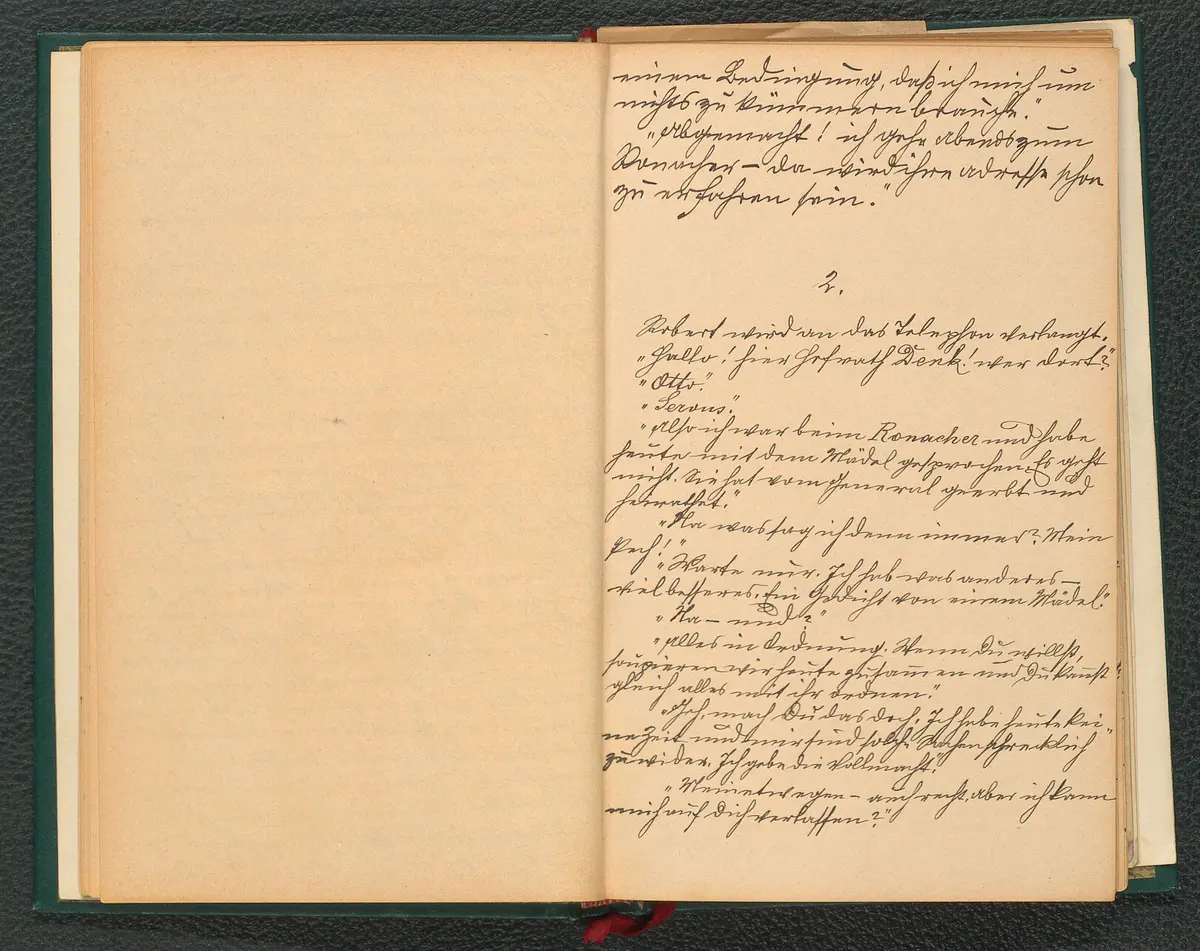 einem Bedingung, daß ich mich um
nichts zu kümmern brauche."
"Abgemacht! ich gehe Abends zum
Ronacher – da wird ihre Adresse schon
zu erfahren sein."
2.
Robert wird an das Telephon verlangt.
"Hallo! hier Hofrath Denk! wer dort?"
"Otto."
"Servus".
"Also ich war beim Ronacher und habe
heute mit dem Mädel gesprochen. Es geht
nicht. Sie hat vom General geerbt und
heirathet."
"Na was sag ich denn immer? Mein
Pech!"
"Warte nur. Ich hab was anderes –
viel besseres. Ein Gedicht von einem Mädel."
"Na – und?"
"Alles in Ordnung. Wenn Du willst,
soupieren wir heute zusammen und Du kannst
gleich alles mit ihr ordnen."
"Geh, mach Du das doch. Ich habe heute kei-
ne Zeit und mir sind solche Sachen schrecklich
zuwider. Ich gebe die Vollmacht."
"Meinetwegen – auch recht, aber ich kann
mich auf Dich verlassen?"